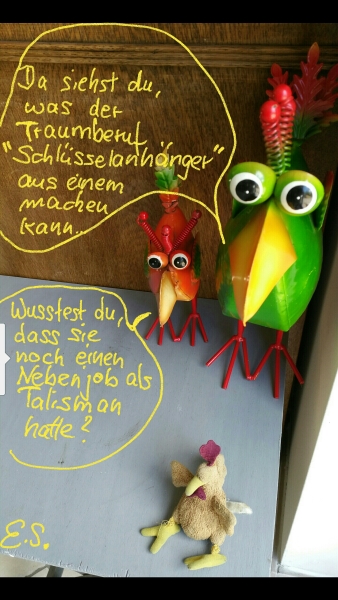 Da siehst du,
was der
Traumberuf
"Schlüsselanhänger"
aus einem
machen
kann...
Wusstest du,
dass sie
noch einen
Nebenjob als
Talisman
hatte?
E.S.